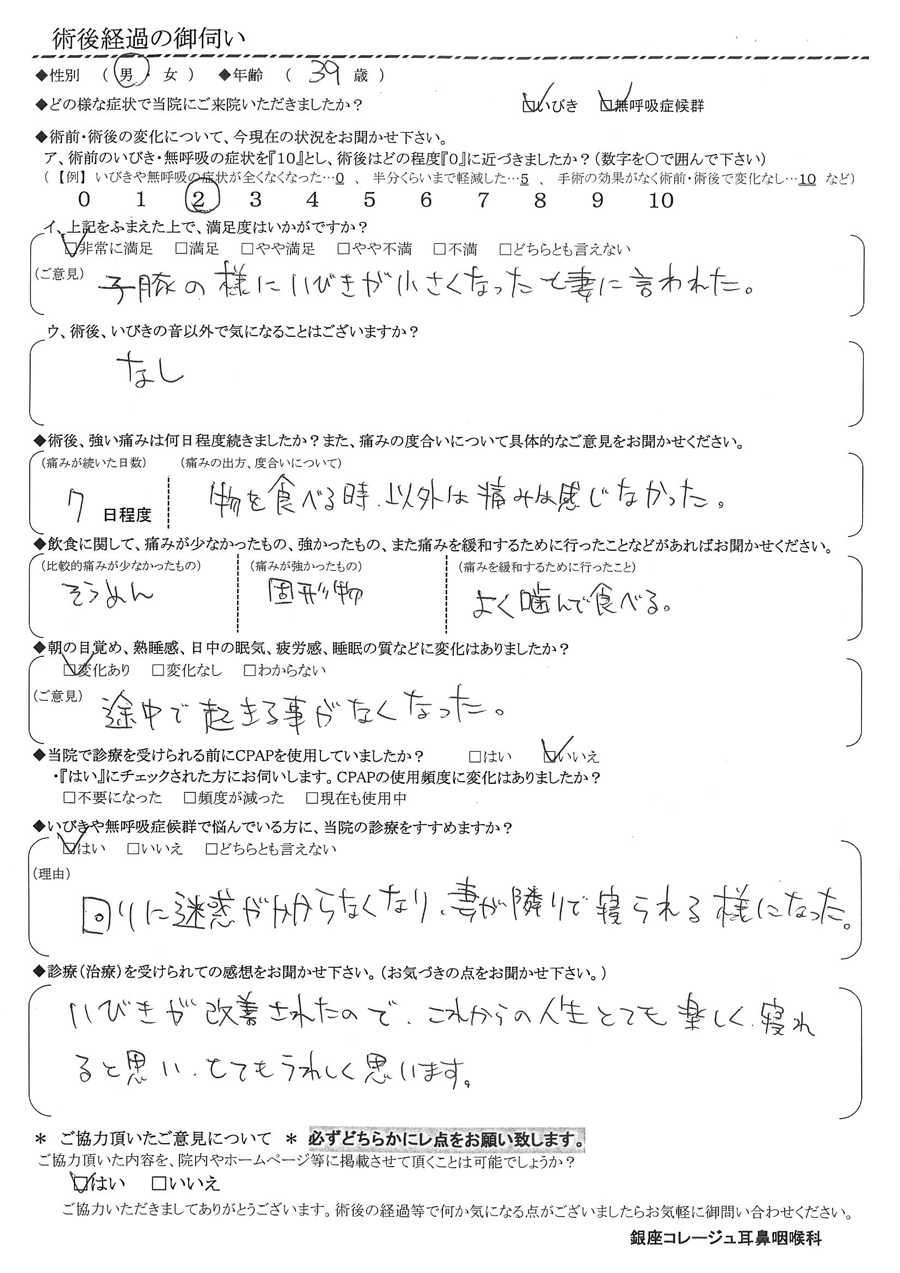 術後経過の御伺い
◆性別 （ 男 ・ 女 ） ◆年齢 （ 39 歳 ）
◆どの様な症状で当院にご来院いただきましたか？ ☑いびき ☑無呼吸症候群
◆術前・術後の変化について、今現在の状況をお聞かせ下さい。
ア、術前のいびき・無呼吸の症状を『10』とし、術後はどの程度『0』に近づきましたか？（数字を〇で囲んで下さい）
（【例】 いびきや無呼吸の症状が全くなくなった…0 、 半分くらいまで軽減した…5 、 手術の効果がなく術前・術後で変化なし…10 など）
0 1 2 3 4 5 6 7 8 9 10
イ、上記をふまえた上で、満足度はいかがですか？
☑非常に満足 □満足 □やや満足 □やや不満 □不満 □どちらとも言えない
（ご意見） 子豚の様にいびきが小さくなったと妻に言われた。
ウ、術後、いびきの音以外で気になることはございますか？
なし
◆術後、強い痛みは何日程度続きましたか？また、痛みの度合いについて具体的なご意見をお聞かせください。
（痛みが続いた日数） （痛みの出方、度合いについて）
7 日程度 物を食べる時、以外は痛みは感じなかった。
◆飲食に関して、痛みが少なかったもの、強かったもの、また痛みを緩和するために行ったことなどがあればお聞かせください。
（比較的痛みが少なかったもの） （痛みが強かったもの） （痛みを緩和するために行ったこと）
そうめん 固形物 よく噛んで食べる。
◆朝の目覚め、熟睡感、日中の眠気、疲労感、睡眠の質などに変化はありましたか？
☑変化あり □変化なし □わからない
（ご意見） 途中で起きる事がなくなった。
◆当院で診療を受けられる前にCPAPを使用していましたか？ □はい ☑いいえ
・『はい』にチェックされた方にお伺いします。CPAPの使用頻度に変化はありましたか？
□不要になった □頻度が減った □現在も使用中
◆いびきや無呼吸症候群で悩んでいる方に、当院の診療をすすめますか？
☑はい □いいえ □どちらとも言えない
（理由）
回りに迷惑がかからなくなり、妻が隣りで寝られる様になった。
◆診療（治療）を受けられての感想をお聞かせ下さい。（お気づきの点をお聞かせ下さい。）
いびきが改善されたので、これからの人生とても楽しく、寝れ
ると思い、とてもうれしく思います。
＊ ご協力頂いたご意見について ＊ 必ずどちらかにレ点をお願い致します。
ご協力頂いた内容を、院内やホームページ等に掲載させて頂くことは可能でしょうか？
☑はい □いいえ
ご協力いただきましてありがとうございます。術後の経過等で何か気になる点がございましたらお気軽に御問い合わせください。
銀座コレージュ耳鼻咽喉科